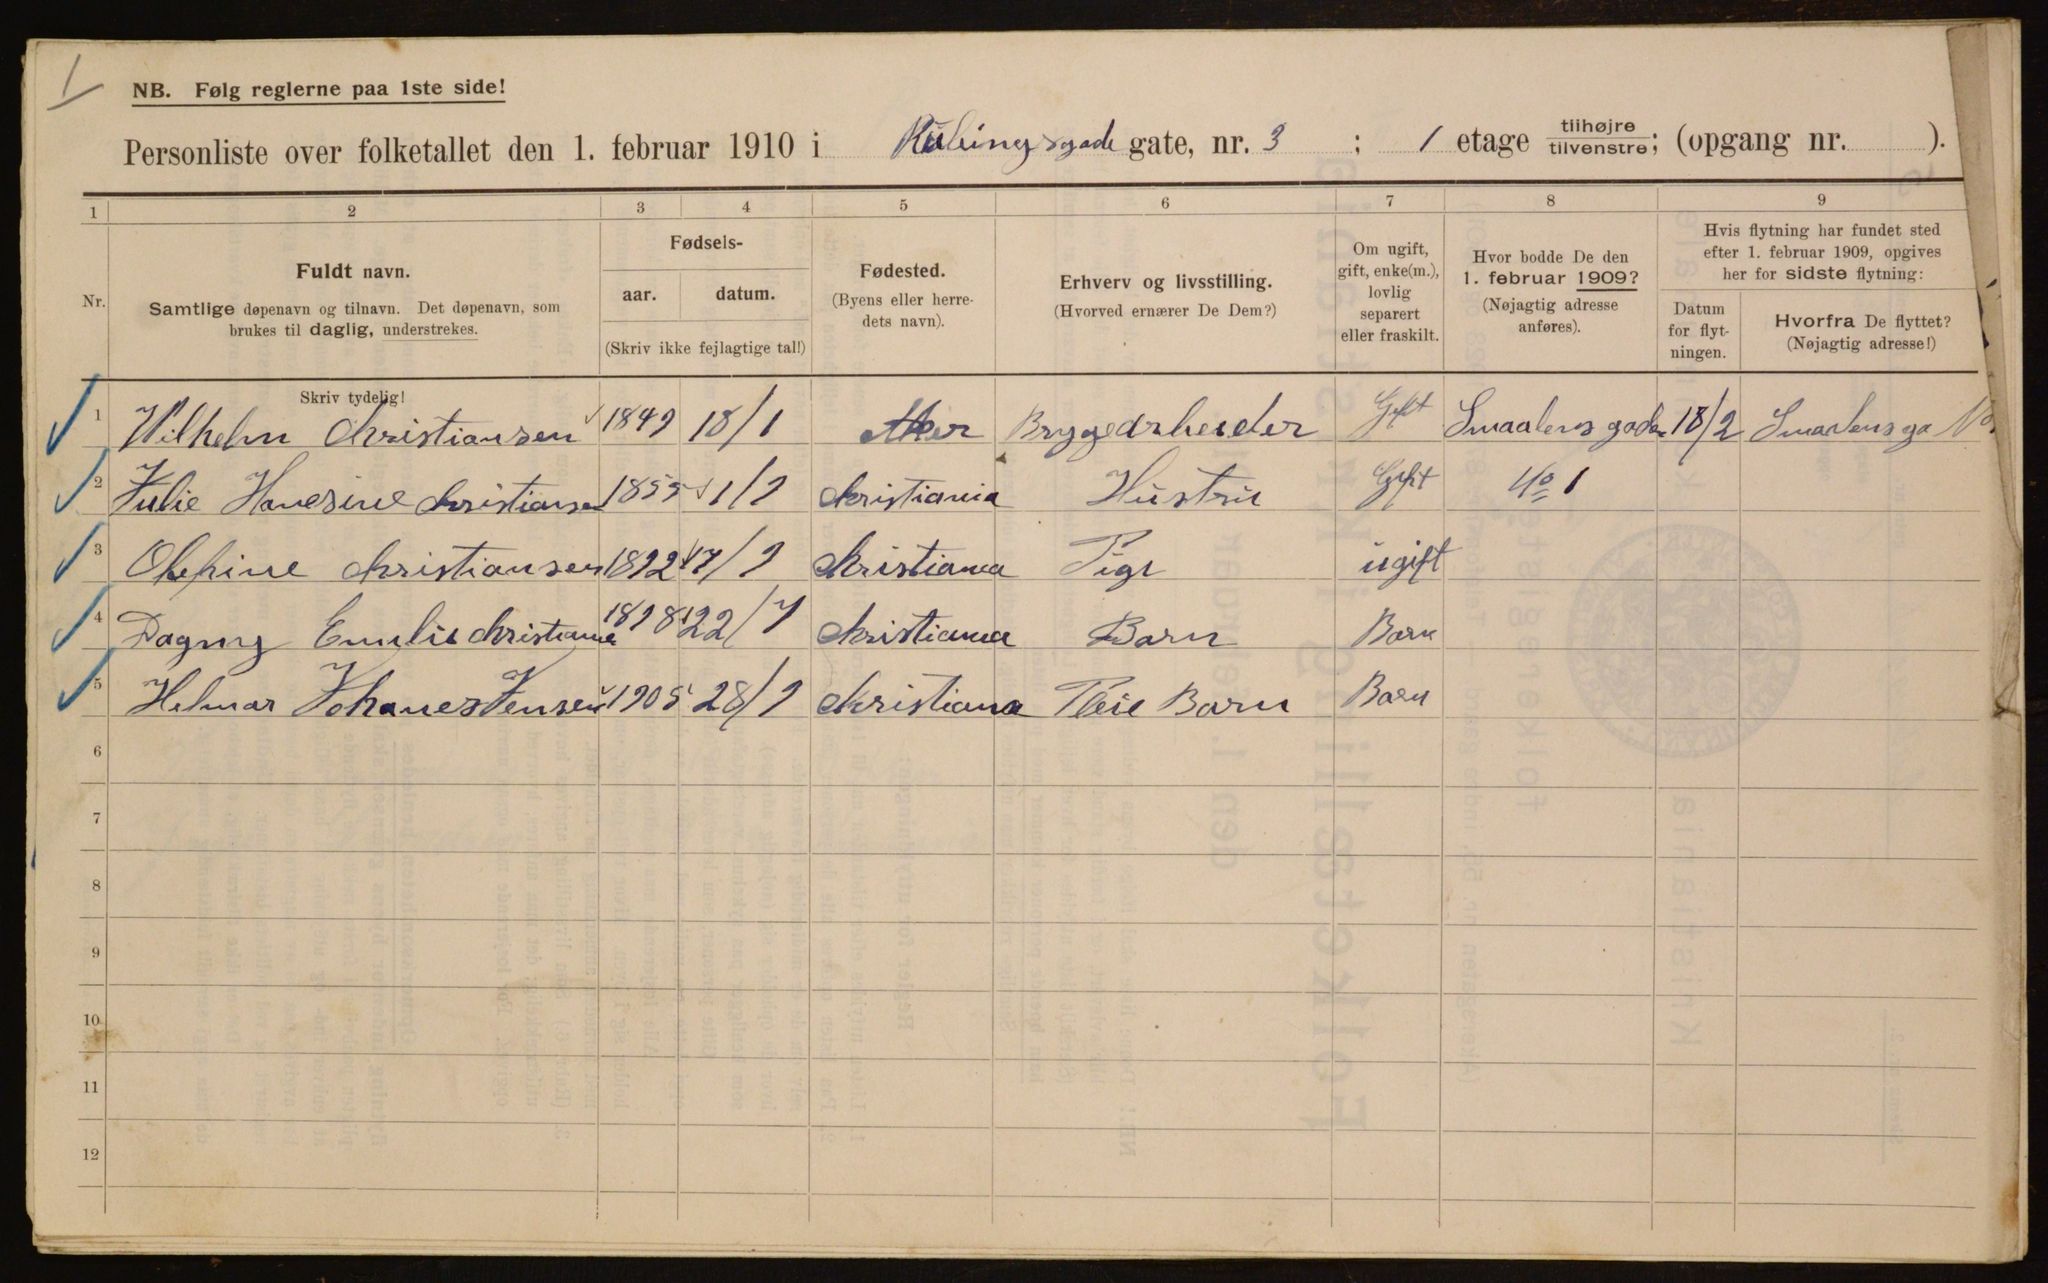 1
NB. Følg reglerne paa 1ste side!
Personliste over folketallet den 1. februar 1910 i Rubingsgade gate, nr. 3 ; 1 etage tilhøjre tilvenstre; (opgang nr. ).
1 2 3 4 5 6 7 8 9
Nr.
Fuldt navn.
Samtlige døpenavn og tilnavn. Det døpenavn, som
brukes til daglig, understrekes.
Fødsels-
aar. datum.
(Skriv ikke fejlagtige tal!)
Fødested.
(Byens eller herre-
dets navn).
Erhverv og livsstilling.
(Hvorved ernærer De Dem?)
Om ugift,
gift, enke(m.),
lovlig
separert
eller fraskilt.
Hvor bodde De den
1. februar 1909?
(Nøjagtig adresse
anføres).
Hvis flytning har fundet sted
efter 1. februar 1909, opgives
her for sidste flytning:
Datum
for flyt-
ningen.
Hvorfra De flyttet?
(Nøjagtig adresse!)
Skriv tydelig!
1 Wilhelm Christiansen 1849 18/1 Aker Bryggearbeider Gift Smaalensgaden 18/2 Smaalensga No
2 Julie Hansine Christiansen 1855 1/9 Kristiania Hustru Gift No 1
3 Olefine Christiansen 1892 17/9 Kristiania Pige ugift
4 Dagny Emilie Christianse 1898 22/7 Kristiania Barn Barn
5 Helmar Johanes Jensen 1905 28/9 Kristiana Pleie Barn Barn
6
7
8
9
10
11
12